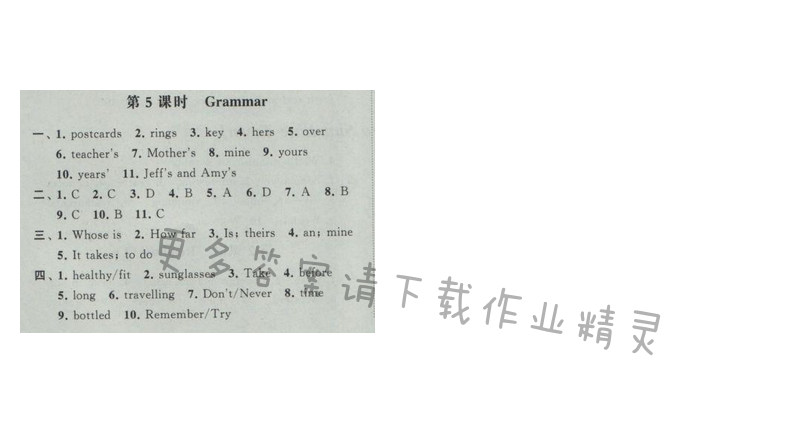 第 5 课时 Grammar
一、1. postcards 2. rings 3. key 4. hers 5. over
6. teacher's 7. Mother's 8. mine 9. yours
10. years' 11. Jeff's and Amy's
二、1. C 2. C 3. D 4. B 5. A 6. D 7. A 8. B
9. C 10. B 11. C
三、1. Whose is 2. How far 3. Is; theirs 4. an; mine
5. It takes; to do
四、1. healthy/fit 2. sunglasses 3. Take 4. before
5. long 6. travelling 7. Don't/Never 8. time
9. bottled 10. Remember/Try
更多答案请下载作业精灵